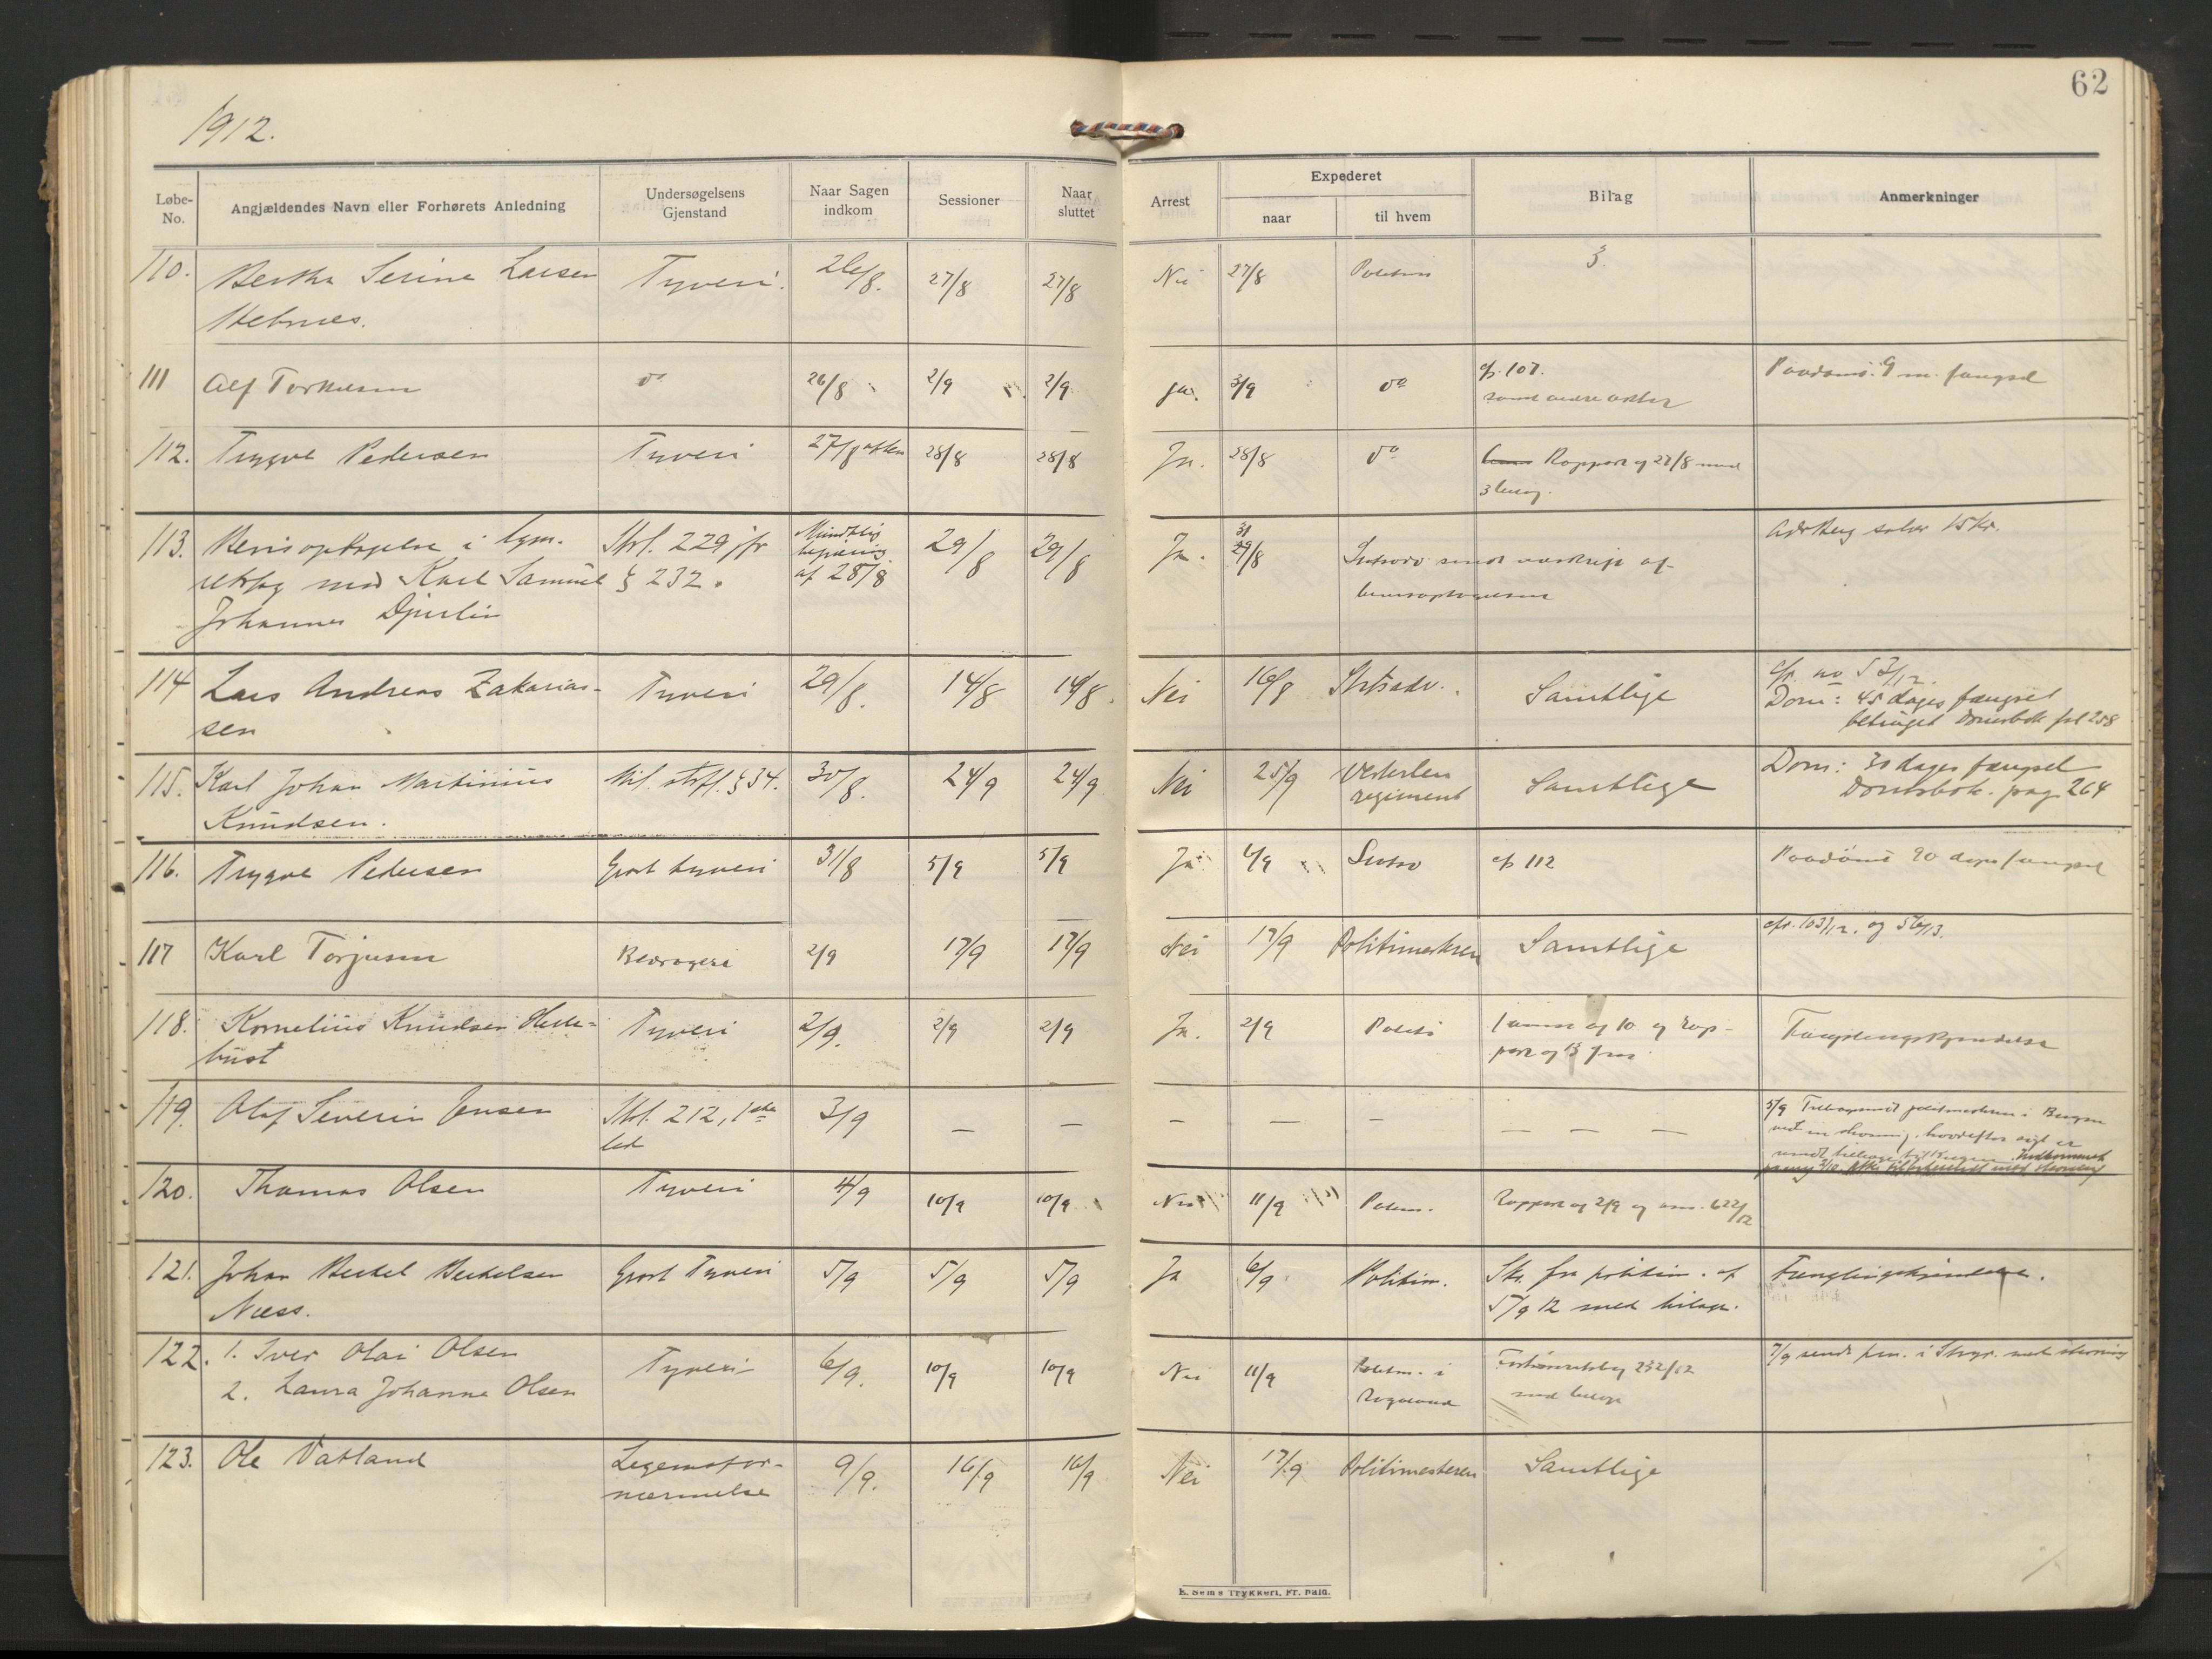 62
1912.
Løbe-No. Angjældendes Navn eller Forhørets Anledning Undersøgelsens Gjenstand Naar Sagen indkom Sessioner Naar sluttet Arrest Expederet naar til hvem Bilag Anmerkninger
110. Bertha Serine Larsen Tyveri. 26/8. 27/8 27/8 Nei 27/8 3.
111 Alf Torkelsen do 26/8 2/9 2/9 ja. 3/9 do cfr. 107. Paadømt. 9 m. fængsel
samt andre akter
112. Trygve Pedersen Tyveri 27/8 aften 28/8 28/8 Ja. 28/8 do Rapport af 27/8 med
3 bilag.
113. Bevisoptagelse i lgm. Strl. 229 jfr Mundtlig begjæring 29/8 29/8 Ja. 31/8 Statsadv sendt utskrift af 15 Kr.
retssag mod Karl Samuel § 232. af 28/8 bevisoptagelsen
Johannes
114 Lars Andreas Zakarias- Tyveri 29/8. 14/8 14/8. Nei 16/8 Statsadv. Samtlige cfr. no 53/12.
sen Dom: 45 dages fængsel
betinget Domsbok fol 258
115. Karl Johan Martinius Mil. strfl. § 34. 30/8. 24/9 24/9 Nei 25/9 Vesterlen Samtlige Dom: 30 dages fængsel
Knudsen. regiment Domsbok. pag 264
116. Trygve Pedersen Grovt tyveri 31/8 5/9 5/9 Ja 6/9 Statsav cfr 112 Paadømt 90 dages fængsel
117 Karl Torjusen Bedrageri 2/9 17/9 17/9 Nei 17/9 Politimesteren Samtlige cfr. 103/12. og 56/13.
118. Kornelius Knudsen Helle- Tyveri 2/9. 2/9 2/9 Ja. 2/9 Politi Fængslingskjendelse
bust
119. Olaf Severin Jensen Strl. 212, 1ste 3/9 — — — — — — — — 5/9 Tilbagesendt politimesteren i Bergen
led
120. Thomas Olsen Tyveri 4/9 10/9 10/9 Nei 11/9 Politim. Rapport af 2/9 og anm. 622/12
121. Johan Bertel Bertelsen Grovt Tyveri 5/9 5/9 5/9 Ja 6/9 Politim. Skr. fra politim. af Fængslingskjendelse.
Næss. 5/9 12 med bilage.
122. 1. Iver Olai Olsen Tyveri 6/9. 10/9 10/9 Nei 11/9 Politim. i Forhørsretsbog 232/12 7/9 sendt pm. i Stvgr. med stevning
2. Laura Johanne Olsen Rogaland med bilage
123. Ole Vatland Legemsfor- 9/9. 16/9 16/9 Nei 17/9 Politimesteren Samtlige
nærmelse
K. Sems Trykkeri, Fr. hald.